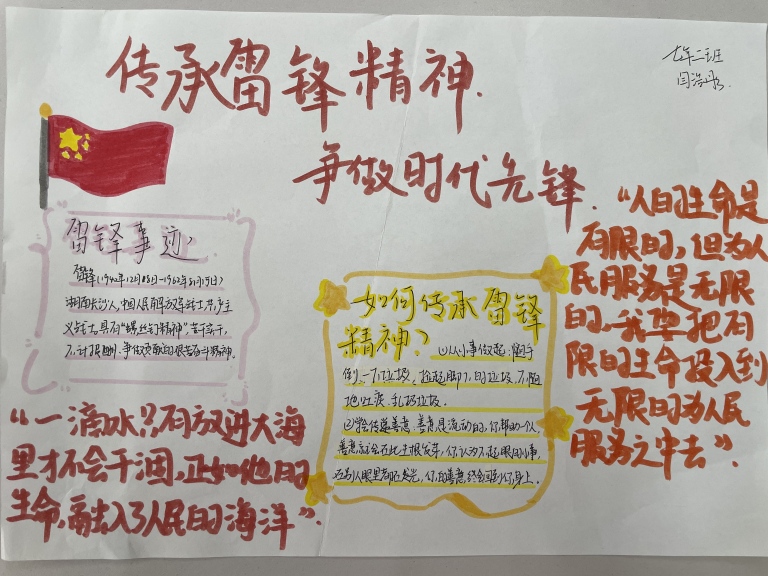 传承雷锋精神.
七年二班
闫浩
争做时代先锋.
雷锋事迹
雷锋(1940年12月18日-1962年8月15日)
湖南长沙人,中国人民解放军战士,共产主
义战士,具有"螺丝钉精神"苦干实干,
不计报酬,争做贡献的艰苦奋斗精神.
如何传承雷锋
精神?
①从小事做起,随手
倒一下垃圾,捡起脚下的垃圾,不随
地吐痰,乱扔垃圾.
②将传递善意,善意是流动的,你帮助一个人,
善意就会在此生根发芽,你认为不起眼的小事,
在别人眼里都在发光,你的善意,终会回到你身上.
"人的生命是
有限的,但为人
民服务是无限
的,我要把有
限的生命投入到
无限的为人民
服务之中去".
"一滴水只有放进大海
里才不会干涸,正如他的
生命,融入了人民的海洋".